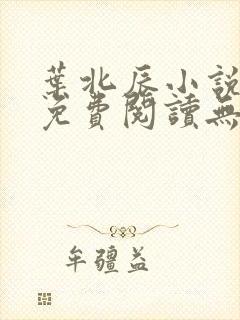 葉北辰小說
免費閱讀無
牟疆益